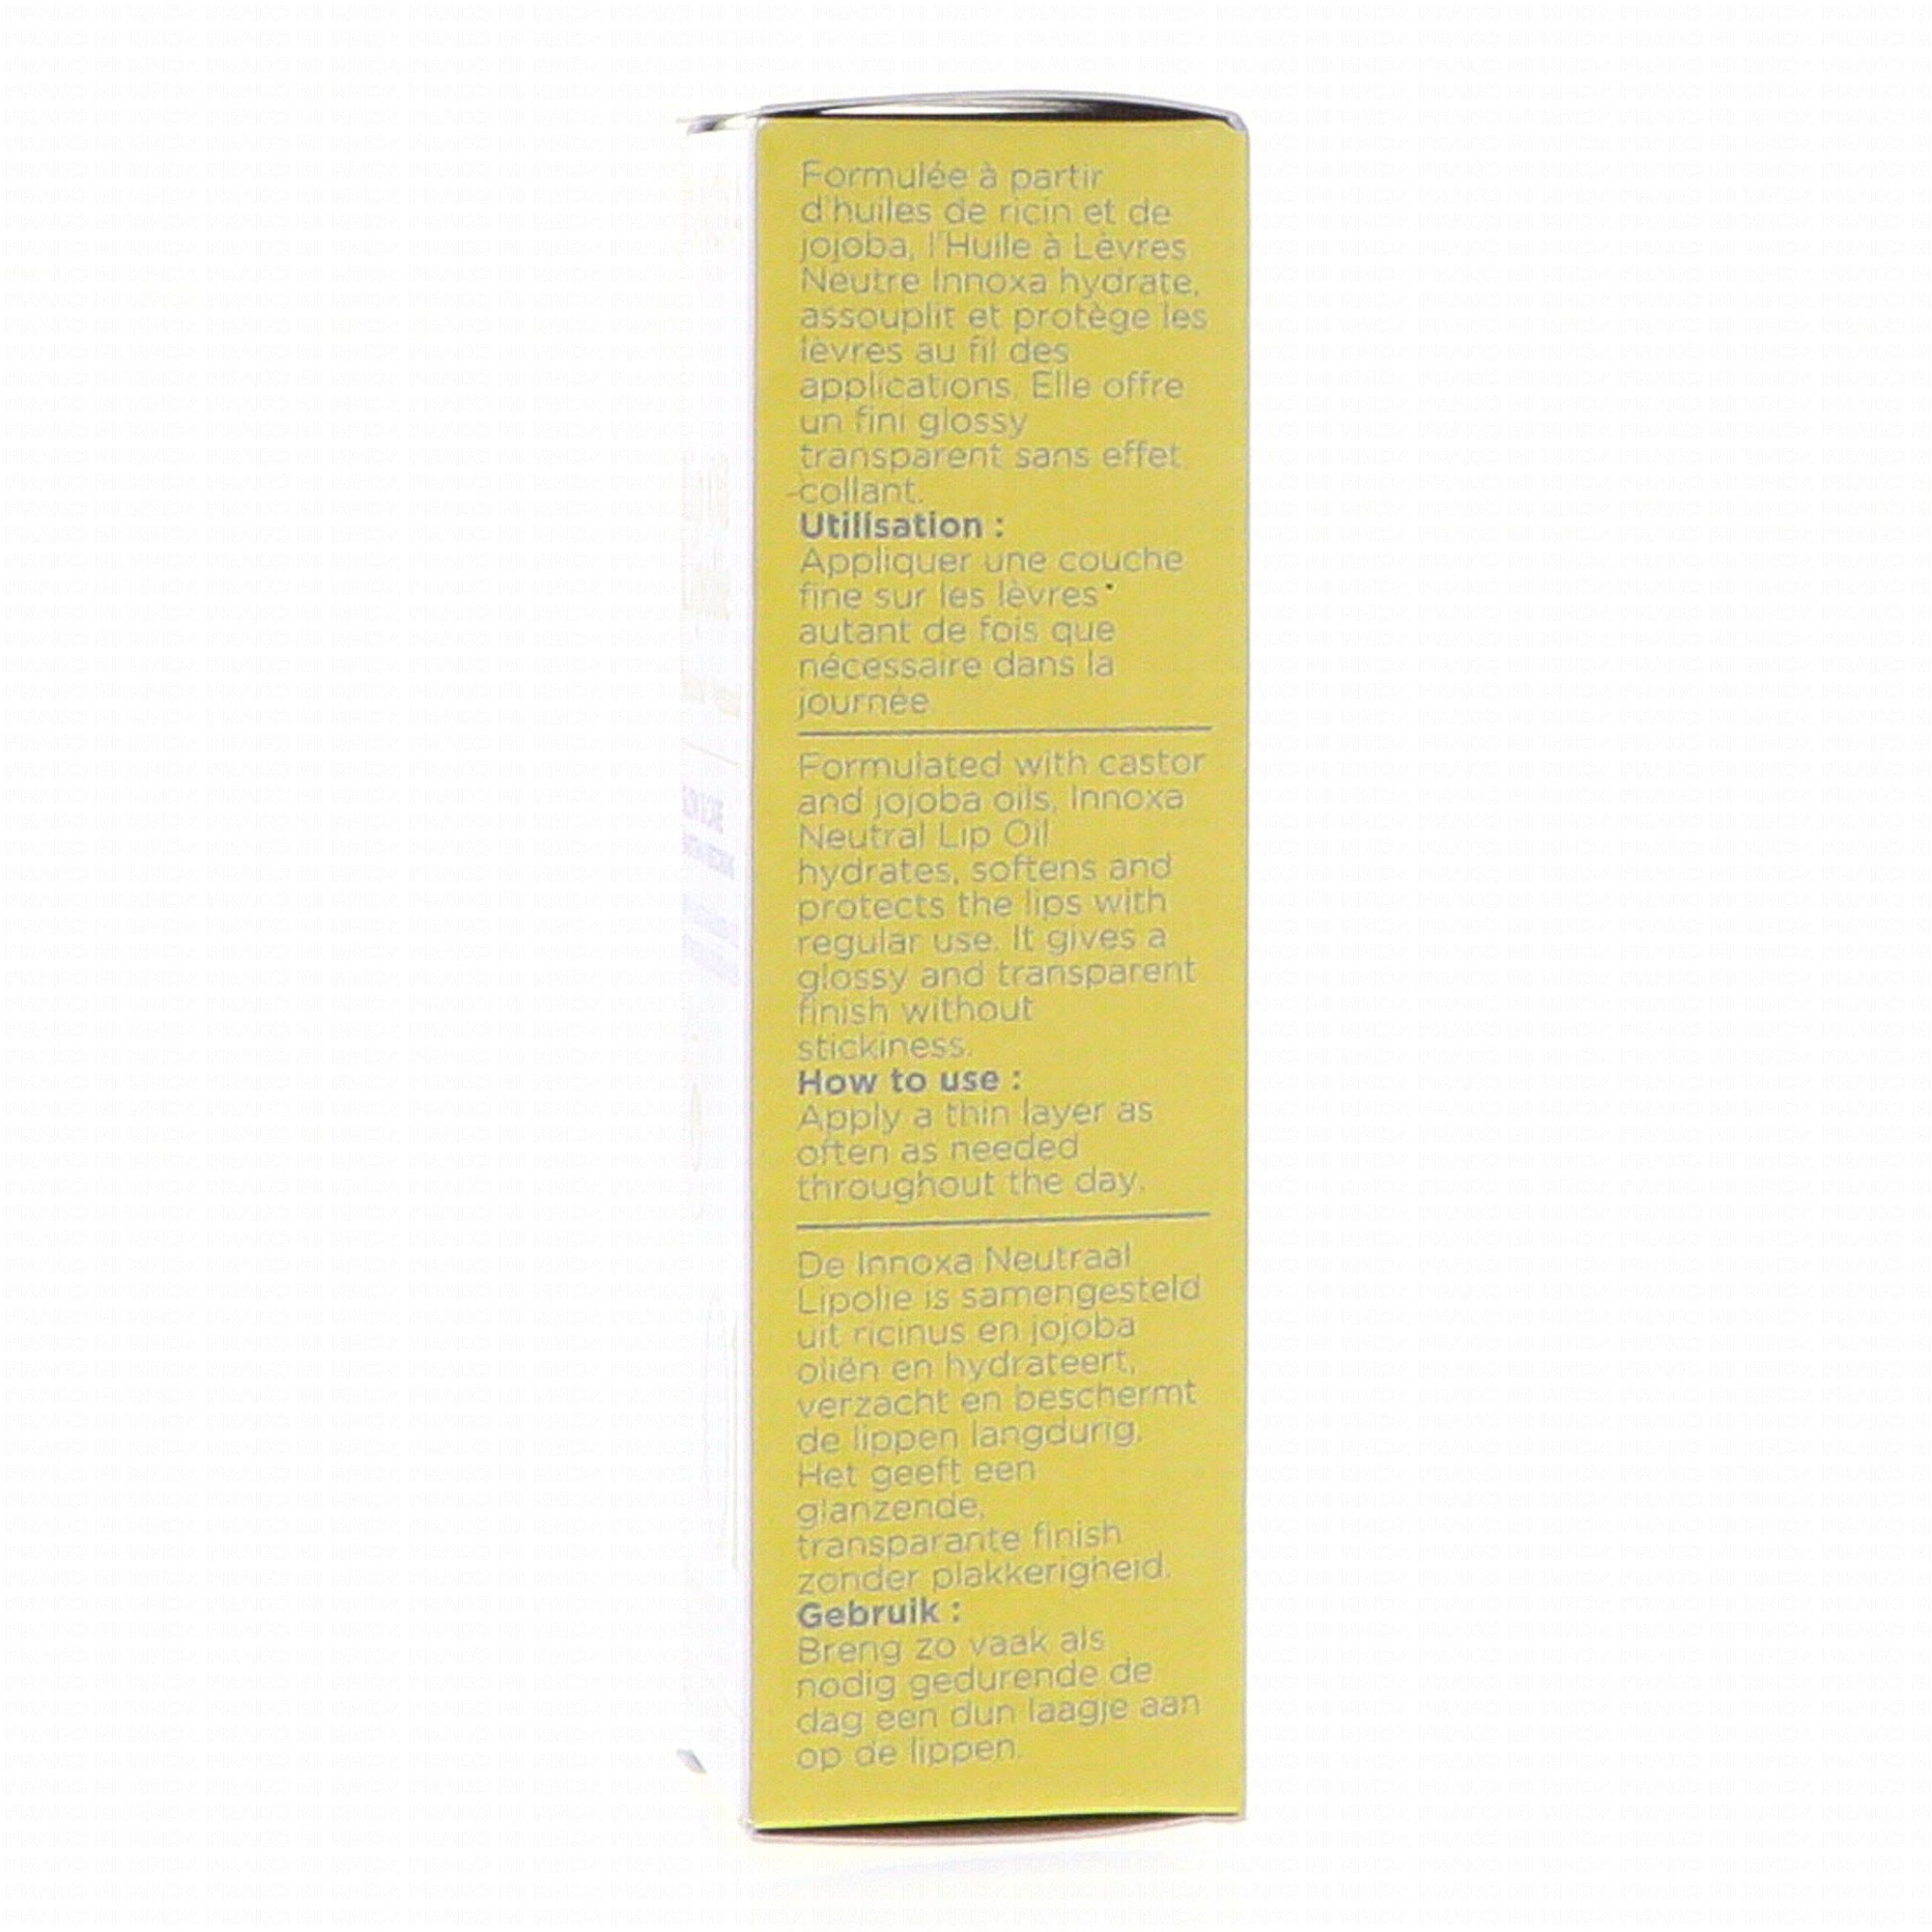 Formulée à partir
d'huiles de ricin et de
jojoba, l'Huile à Lèvres
Neutre Innoxa hydrate,
assouplit et protège les
lèvres au fil des
applications. Elle offre
un fini glossy
transparent sans effet
collant.
Utilisation :
Appliquer une couche
fine sur les lèvres
autant de fois que
nécessaire dans la
journée
Formulated with castor
and jojoba oils, Innoxa
Neutral Lip Oil
hydrates, softens and
protects the lips with
regular use. It gives a
glossy and transparent
finish without
stickiness.
How to use :
Apply a thin layer as
often as needed
throughout the day.
De Innoxa Neutraal
Lipolie is samengesteld
uit ricinus en jojoba
oliën en hydrateert,
verzacht en beschermt
de lippen langdurig.
Het geeft een
glanzende,
transparante finish
zonder plakkerigheid.
Gebruik :
Breng zo vaak als
nodig gedurende de
dag een dun laagje aan
op de lippen.